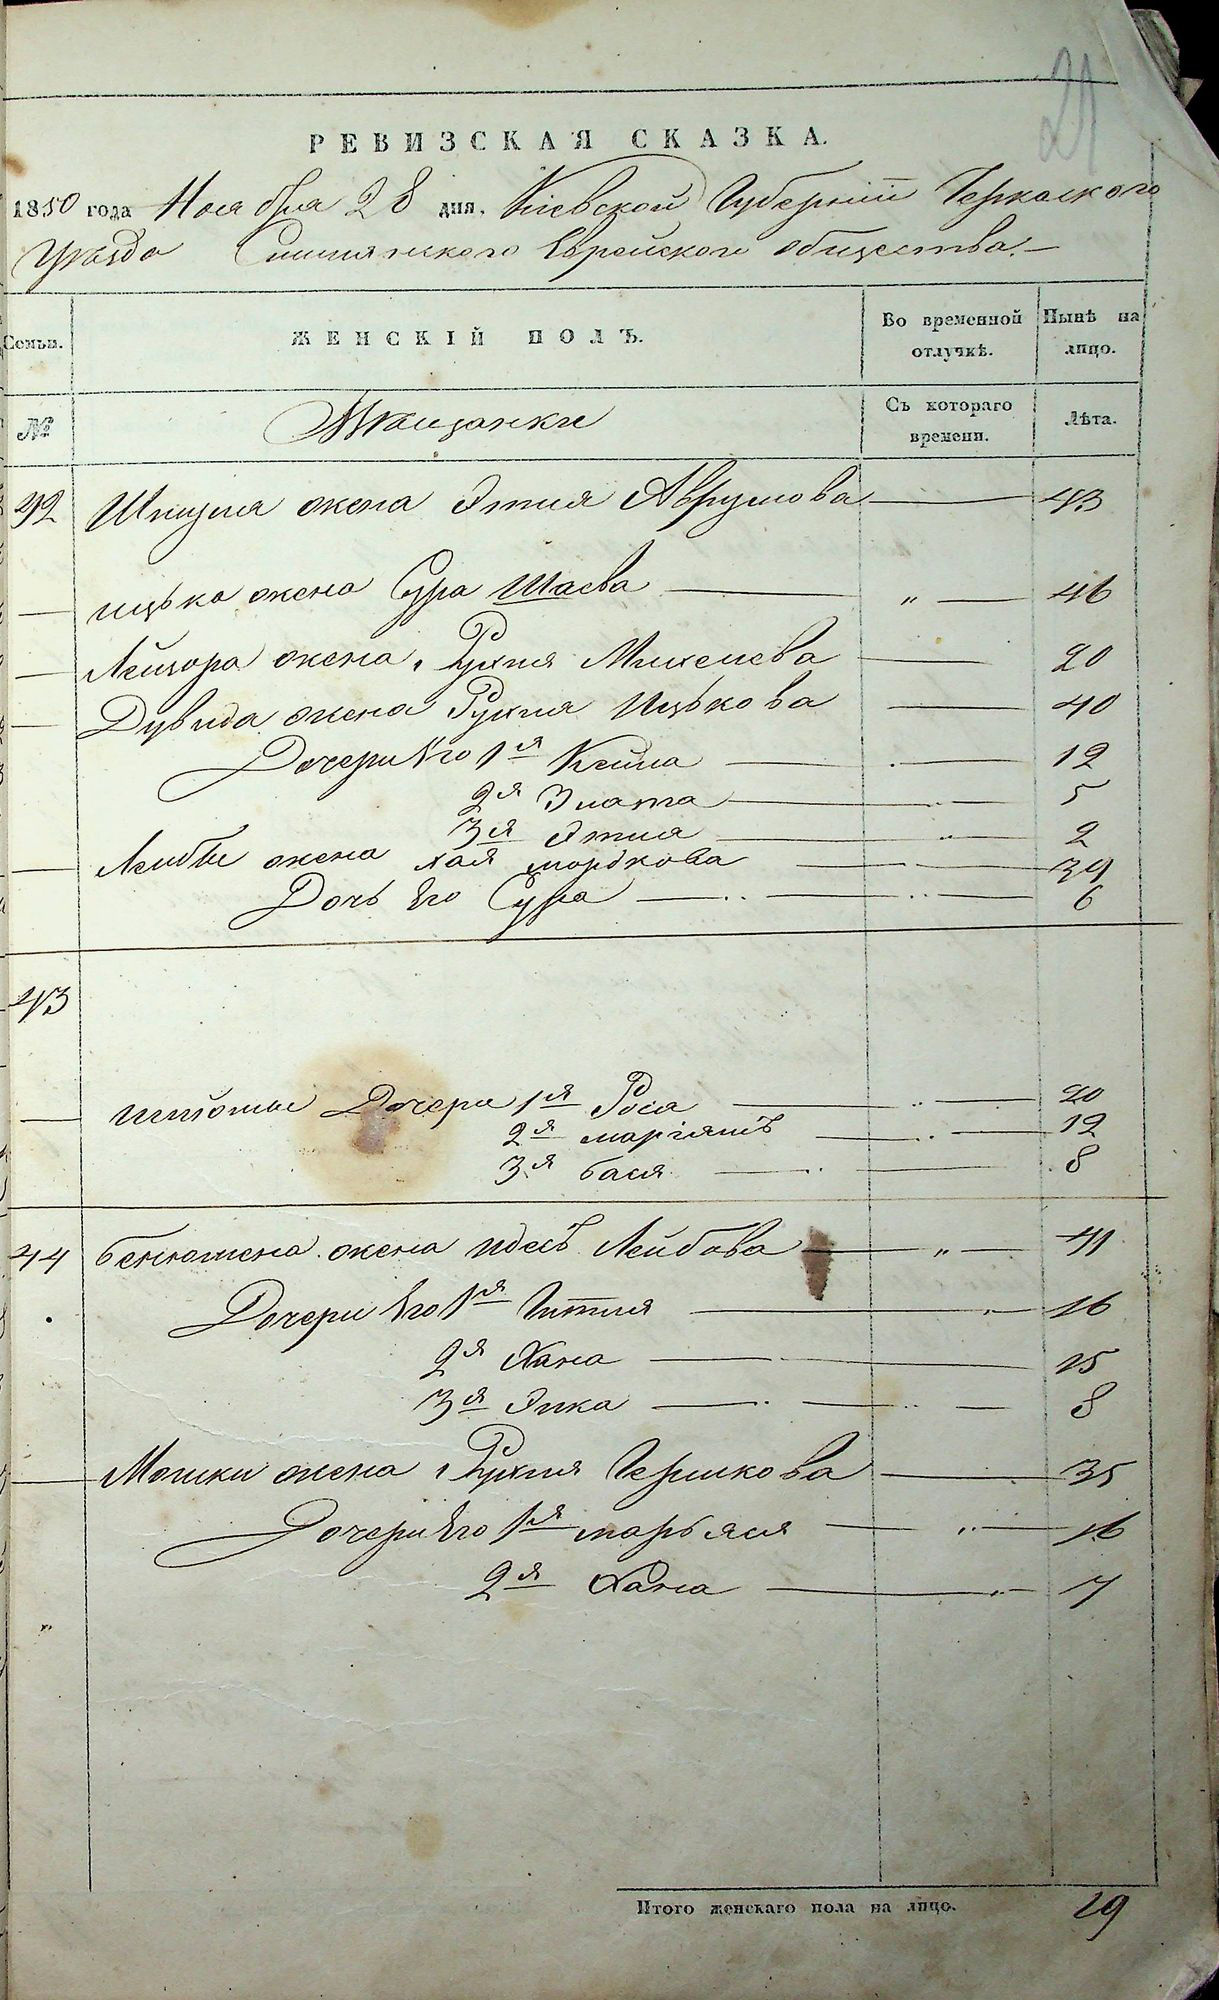 21
РЕВИЗСКАЯ СКАЗКА.
1850 года Ноября 28 дня, Кіевской Губерніи Черкаского
Уѣзда Еврейского общества.—
Семьи. ЖЕНСКІЙ ПОЛЪ. Во временной отлучкѣ. Нынѣ на лицо.
№ Мѣщанки Съ котораго времени. Лѣта.
42 Шмуля жена Этля Аврумова 43
ицька жена Сура Шаева " 46
Лейзора жена Рухля Михелева 20
Дувида жена Рухля Ицькова 40
Дочери Его 1я Кейла 12
2я Злата 5
3я Этля 2
Лейбы жена хая мордкова 39
Дочь Его Сура 6
43
Дочери 1я Рося 20
2я маріямъ 12
3я бася 8
44 бенюмена жена идесъ Лейбова " 41
Дочери Его 1я Гитля 16
2я Хана 15
3я Элка 8
Мошки жена Рухля Гершкова 35
Дочери Его 1я марьяся 16
2я Хана 7
Итого женскаго пола на лицо. 19